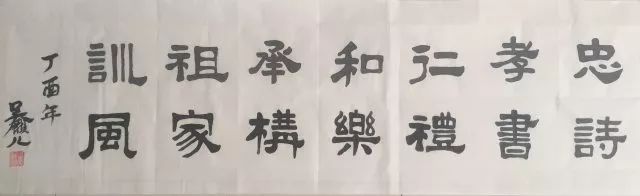 忠孝仁和承祖訓
詩書禮樂構家風
丁酉年